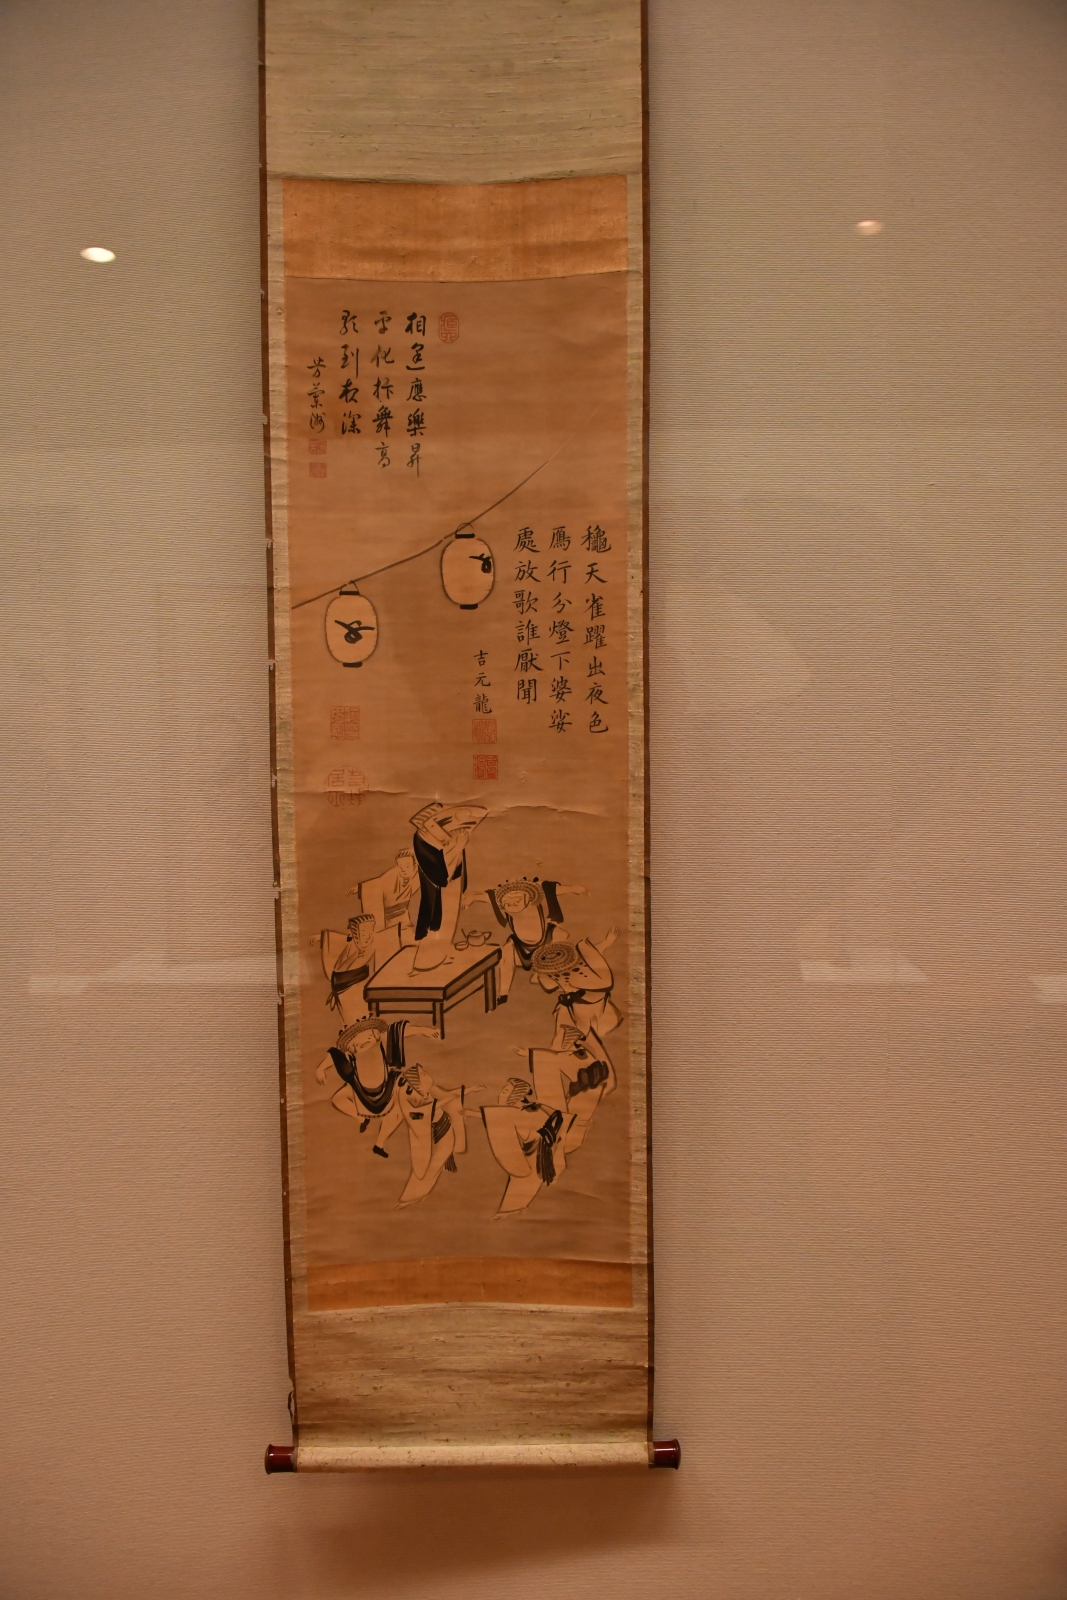 相逢應樂昇
平化抃舞高
歌到夜深
芳蘭洲
龝天雀躍出夜色
鴈行分燈下婆娑
處放歌誰厭聞
吉元龍